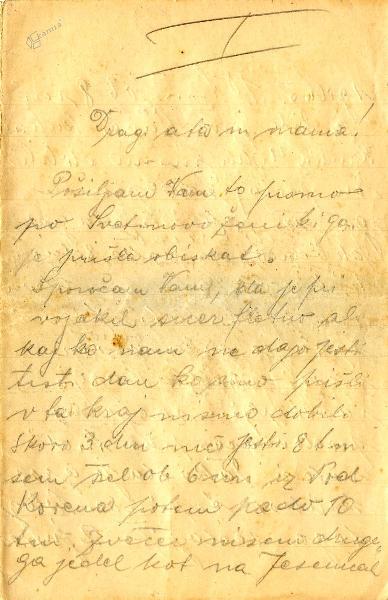 kamra
I
Dragi ata in mama!
Pošiljam Vam to pismo
po Svetinovo ženi ki ga
je prišla obiskat.
Sporočam Vam, da je pri
vojakih sicer fletno ali
kaj ko nam ne dajo jesti
tisti dan ko smo prišli
v ta kraj nismo dobili
skoro 3 dni nič jesti. 8 tm
sem šel ob 6 uri iz Pod
Korena potem pa do 10
tm zvečer nisem druge-
ga jedel kot na Jesenicah